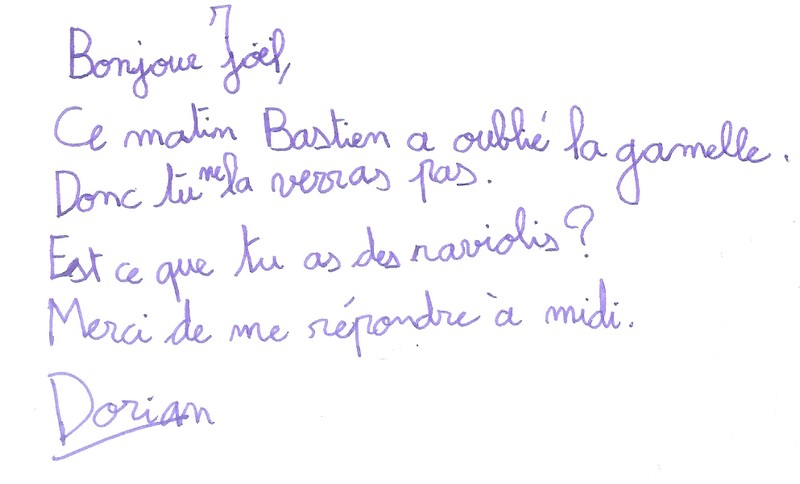 Bonjour Joël,
Ce matin Bastien a oublié la gamelle.
Donc tu ne la verras pas.
Est ce que tu as des raviolis ?
Merci de me répondre à midi.
Dorian